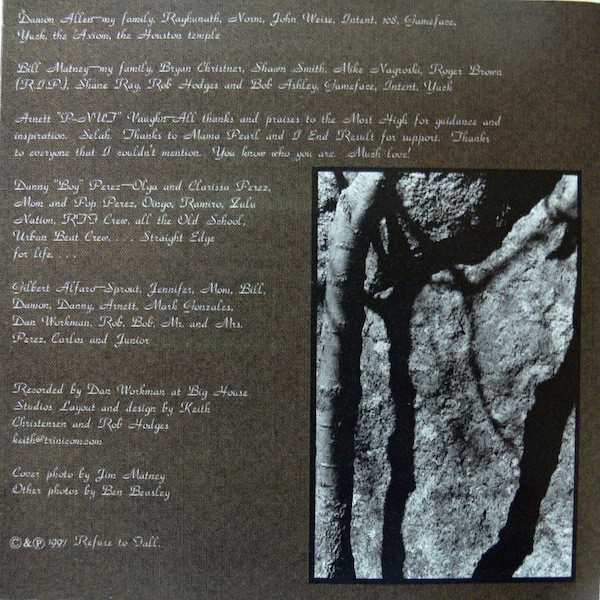 Damon Allen—my family, Raghunath, Norm, John Weise, Intent, 108, Gameface,
Yuck, the Axiom, the Houston temple
Bill Matney—my family, Bryan Christner, Shawn Smith, Mike Nagroski, Roger Brown
(R.I.P.), Shane Ray, Rob Hodges and Bob Ashley, Gameface, Intent, Yuck
Arnett "P-NUT" Vaughn—All thanks and praises to the Most High for guidance and
inspiration. Selah. Thanks to Mama Pearl and I End Result for support. Thanks
to everyone that I couldn't mention. You know who you are. Much love!
Danny "Boy" Perez—Olga and Clarissa Perez,
Mom and Pop Perez, Oingo, Ramiro, Zulu
Nation, RTF Crew, all the Old School,
Urban Beat Crew. . . . Straight Edge
for life. . . .
Gilbert Alfaro—Sprout, Jennifer, Mom, Bill,
Damon, Danny, Arnett, Mark Gonzales,
Dan Workman, Rob, Bob, Mr. and Mrs.
Perez, Carlos and Junior
Recorded by Dan Workman at Big House
Studios Layout and design by Keith
Christensen and Rob Hodges
keith@trinicom.com
Cover photo by Jim Matney
Other photos by Ben Beasley
©&℗ 1997 Refuse to Fall.